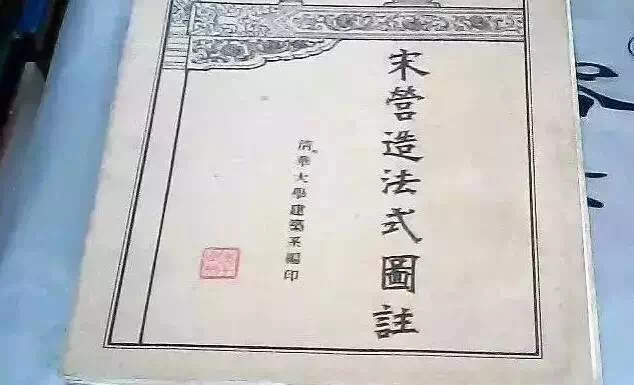 宋營造法式圖註
清華大學建築系編印